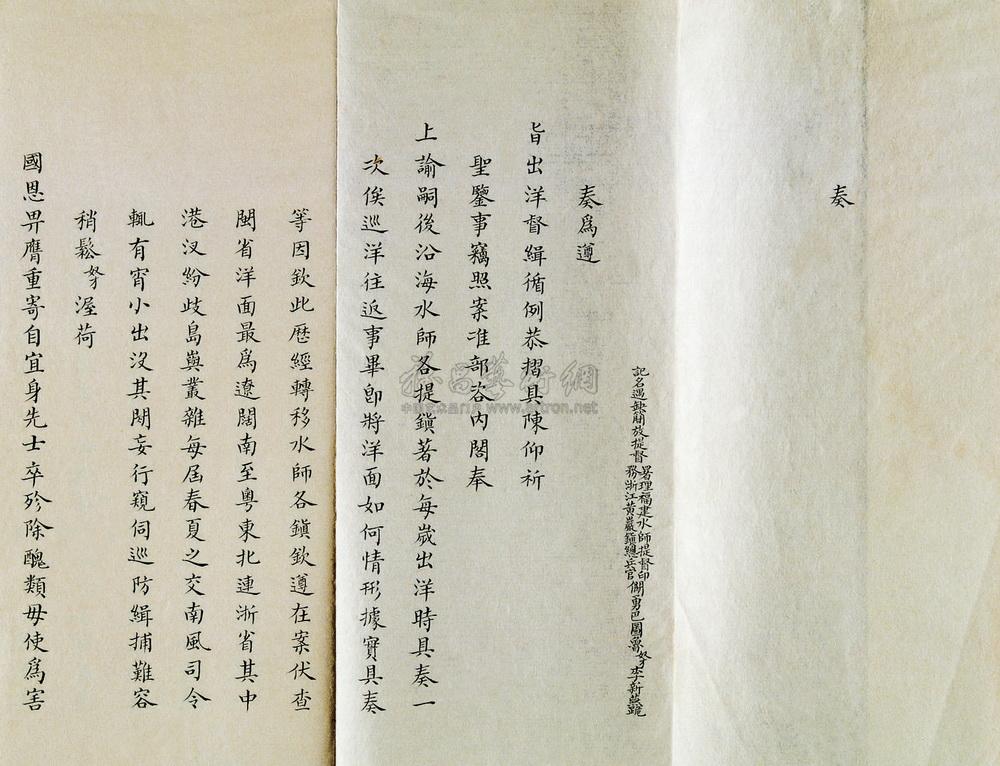 奏
記名遇缺簡放提督署理福建水師提督印務浙江黃巖鎮總兵官僩勇巴圖魯奴才李新燕跪
奏為遵
旨出洋督緝循例恭摺具陳仰祈
聖鑒事竊照案准部咨內閣奉
上諭嗣後沿海水師各提鎮著於每歲出洋時具奏一
次俟巡洋往返事畢即將洋面如何情形據實具奏
等因欽此歷經轉移水師各鎮欽遵在案伏查
閩省洋面最為遼闊南至粵東北連浙省其中
港汊紛歧島嶼叢雜每屆春夏之交南風司令
輒有宵小出沒其間妄行窺伺巡防緝捕難容
稍鬆奴才渥荷
國恩畀膺重寄自宜身先士卒殄除醜類毋使為害